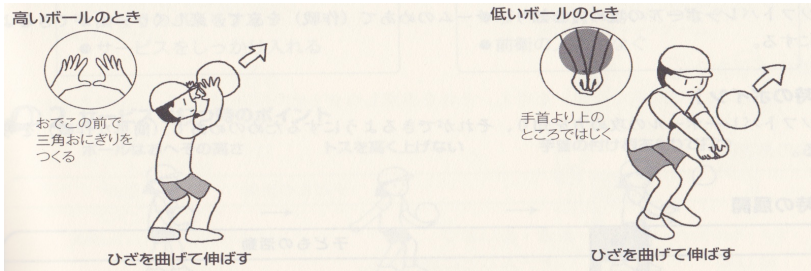 高いボールのとき
おでこの前で
三角おにぎりを
つくる
ひざを曲げて伸ばす
低いボールのとき
手首より上の
ところではじく
ひざを曲げて伸ばす